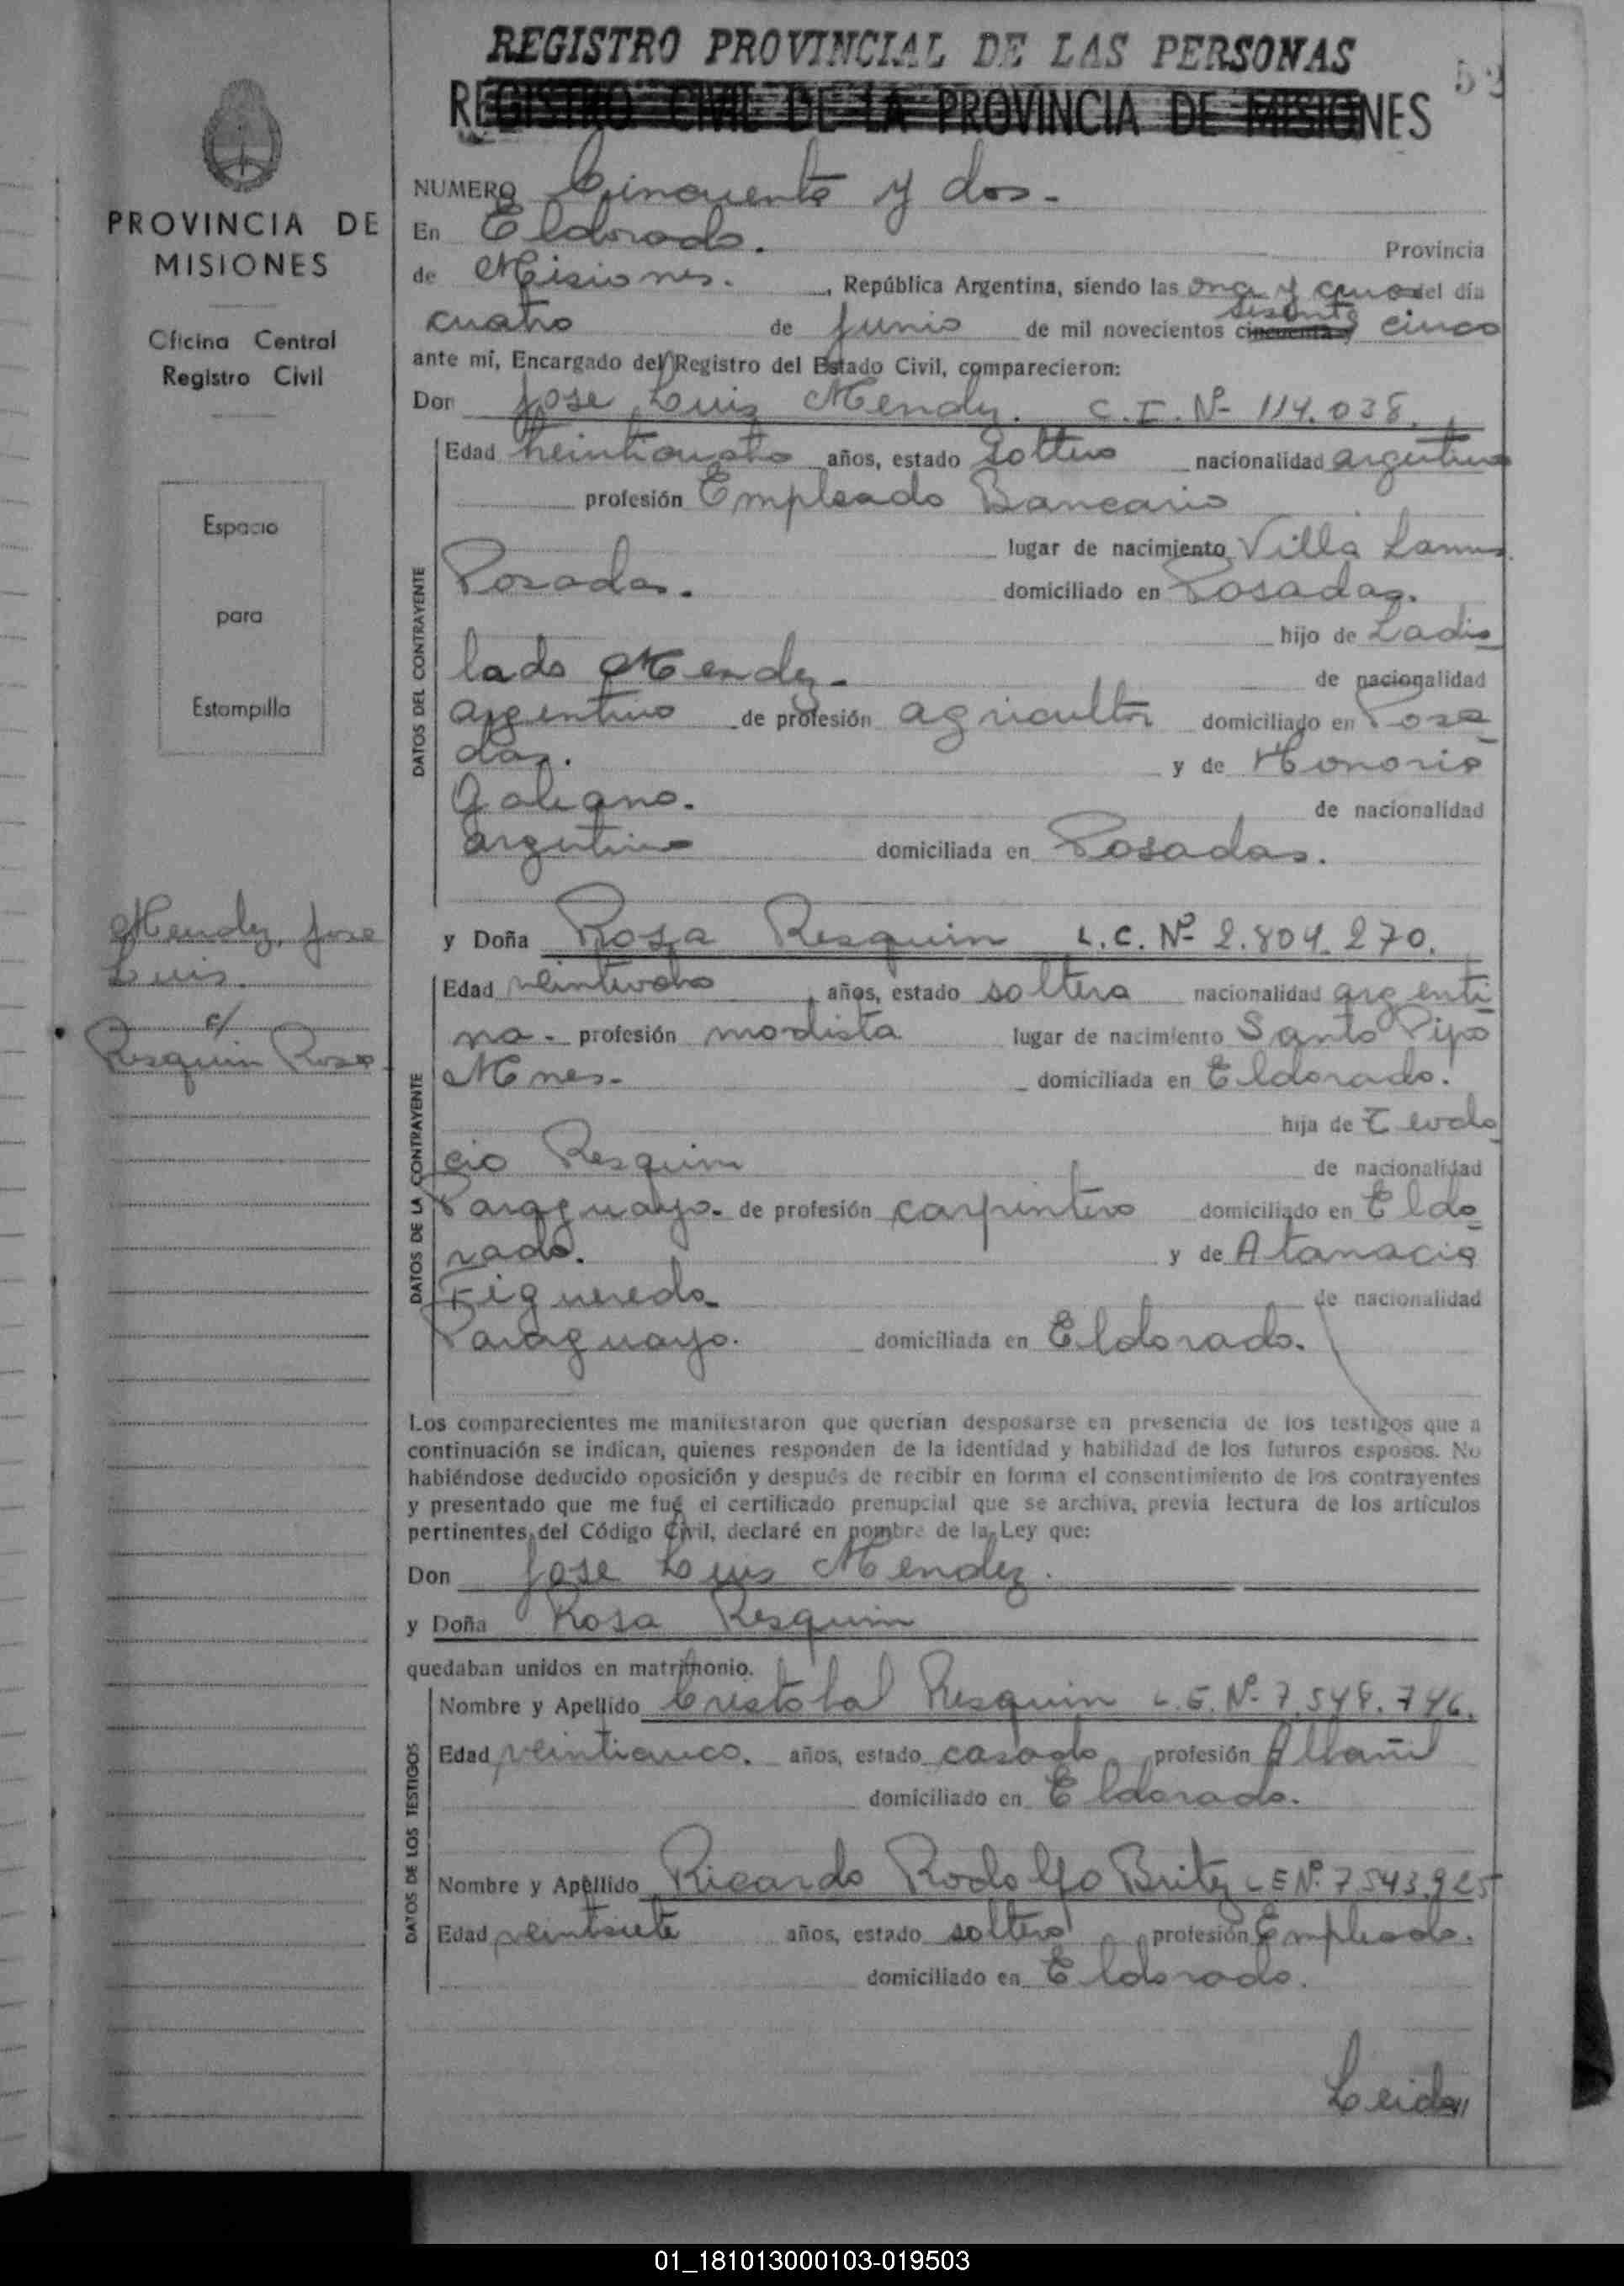 REGISTRO PROVINCIAL DE LAS PERSONAS
52
REGISTRO CIVIL DE LA PROVINCIA DE MISIONES
PROVINCIA DE
MISIONES
Oficina Central
Registro Civil
Espacio
para
Estampilla
Mendez, Jose
Luis.
c/
Resquin Rosa
NUMERO Cincuenta y dos.-
En Eldorado. Provincia
de Misiones. , República Argentina, siendo las once y del día
cuatro de Junio de mil novecientos cincuenta y sesenta cinco
ante mí, Encargado del Registro del Estado Civil, comparecieron:
Don Jose Luis Mendez. C.I. Nº 114.038.
DATOS DEL CONTRAYENTE
Edad veinticuatro años, estado soltero nacionalidad argentino
profesión Empleado Bancario
lugar de nacimiento Villa Lanus
Posadas. domiciliado en Posadas.
hijo de Ladis
lado Mendez.- de nacionalidad
argentino de profesión agricultor domiciliado en Posa
das. y de Honoria
Galeano. de nacionalidad
argentina domiciliada en Posadas.
y Doña Rosa Resquin L.C. Nº 2.804.270.
DATOS DE LA CONTRAYENTE
Edad veintiocho años, estado soltera nacionalidad argenti
na.- profesión modista lugar de nacimiento Santo Pipo
Mnes.- domiciliada en Eldorado.
hija de Teodo
cio Resquin de nacionalidad
Paraguayo.- de profesión carpintero domiciliado en Eldo
rado. y de Atanacia
Figueredo de nacionalidad
Paraguaya. domiciliada en Eldorado.
Los comparecientes me manifestaron que querían desposarse en presencia de los testigos que a
continuación se indican, quienes responden de la identidad y habilidad de los futuros esposos. No
habiéndose deducido oposición y después de recibir en forma el consentimiento de los contrayentes
y presentado que me fué el certificado prenupcial que se archiva, previa lectura de los artículos
pertinentes del Código Civil, declaré en nombre de la Ley que:
Don Jose Luis Mendez.
y Doña Rosa Resquin
quedaban unidos en matrimonio.
DATOS DE LOS TESTIGOS
Nombre y Apellido Cristobal Resquin L.E. Nº 7.548.746.
Edad veinticinco. años, estado casado profesión Albañil
domiciliado en Eldorado.
Nombre y Apellido Ricardo Rodolfo Britez L E Nº 7.543.925
Edad veintisiete años, estado soltero profesión Empleado.
domiciliado en Eldorado.
Leida//
01_181013000103-019503